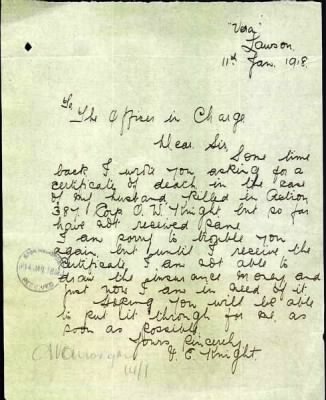 "Vera"
Lawson
11th Jan. 1918.
To
The Officer in Charge
Dear Sir,
Some time
back I wrote you asking for a
certificate of death in the case
of my husband killed in Action
3871 Corp O. W. Knight but so far
have not received same
I am sorry to trouble you
again, but until I receive the
certificate I am not able to
draw the insurance money and
just now I am in need of it.
Hoping you will be able
to put it through for me as
soon as possible
Yours Sincerely
E. Knight.
14/1